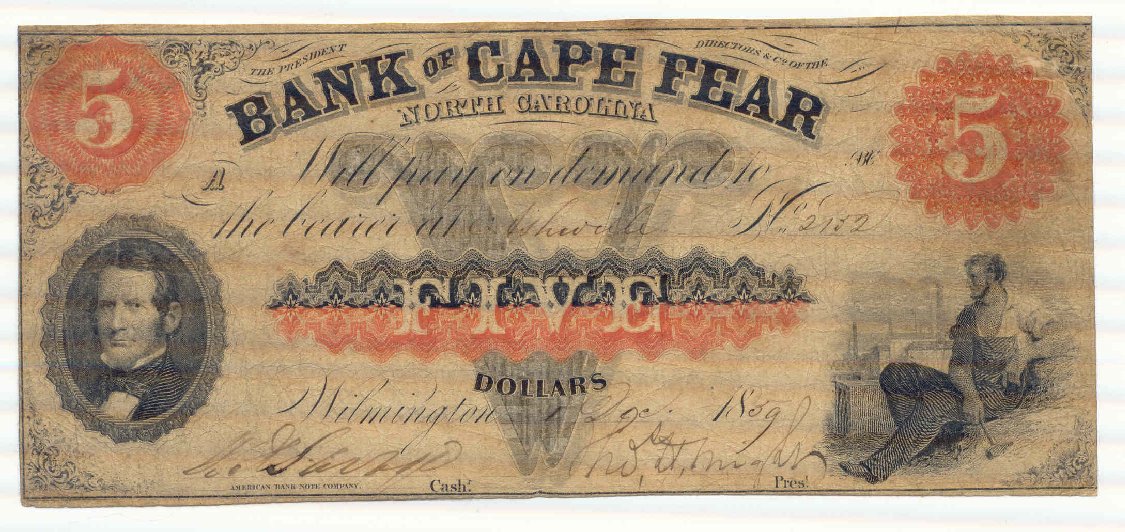 THE PRESIDENT DIRECTORS & Co. OF THE
BANK OF CAPE FEAR
NORTH CAROLINA
5
5
A Will pay on demand to
the bearer at Asheville No. 2152
FIVE
DOLLARS
Wilmington 1 Dec. 1859
AMERICAN BANK NOTE COMPANY. Cash.r Pres.t